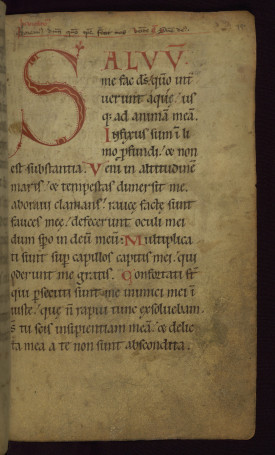 SALVV̄
me fac ds̄ qm̄ int
uerunt aque us
q: ad animā meā.
Infixus sum ī li
mo profundi. & non
est substantia. Veni in altitudinē
maris. & tempestas dimersit me.
Laboraui clamans. rauce facte sunt
fauces mee. defecerunt oculi mei
dum spo in deū meū. Multiplica
ti sunt sup capillos capitis mei. qui
oderunt me gratis. Confortati st̄
qui persecuti sunt me inimici mei ī
iuste. que n̄ rapui tunc exsoluebam.
Ds̄ tu scis insipientiam meā. & delic
ta mea a te non sunt abscondita.